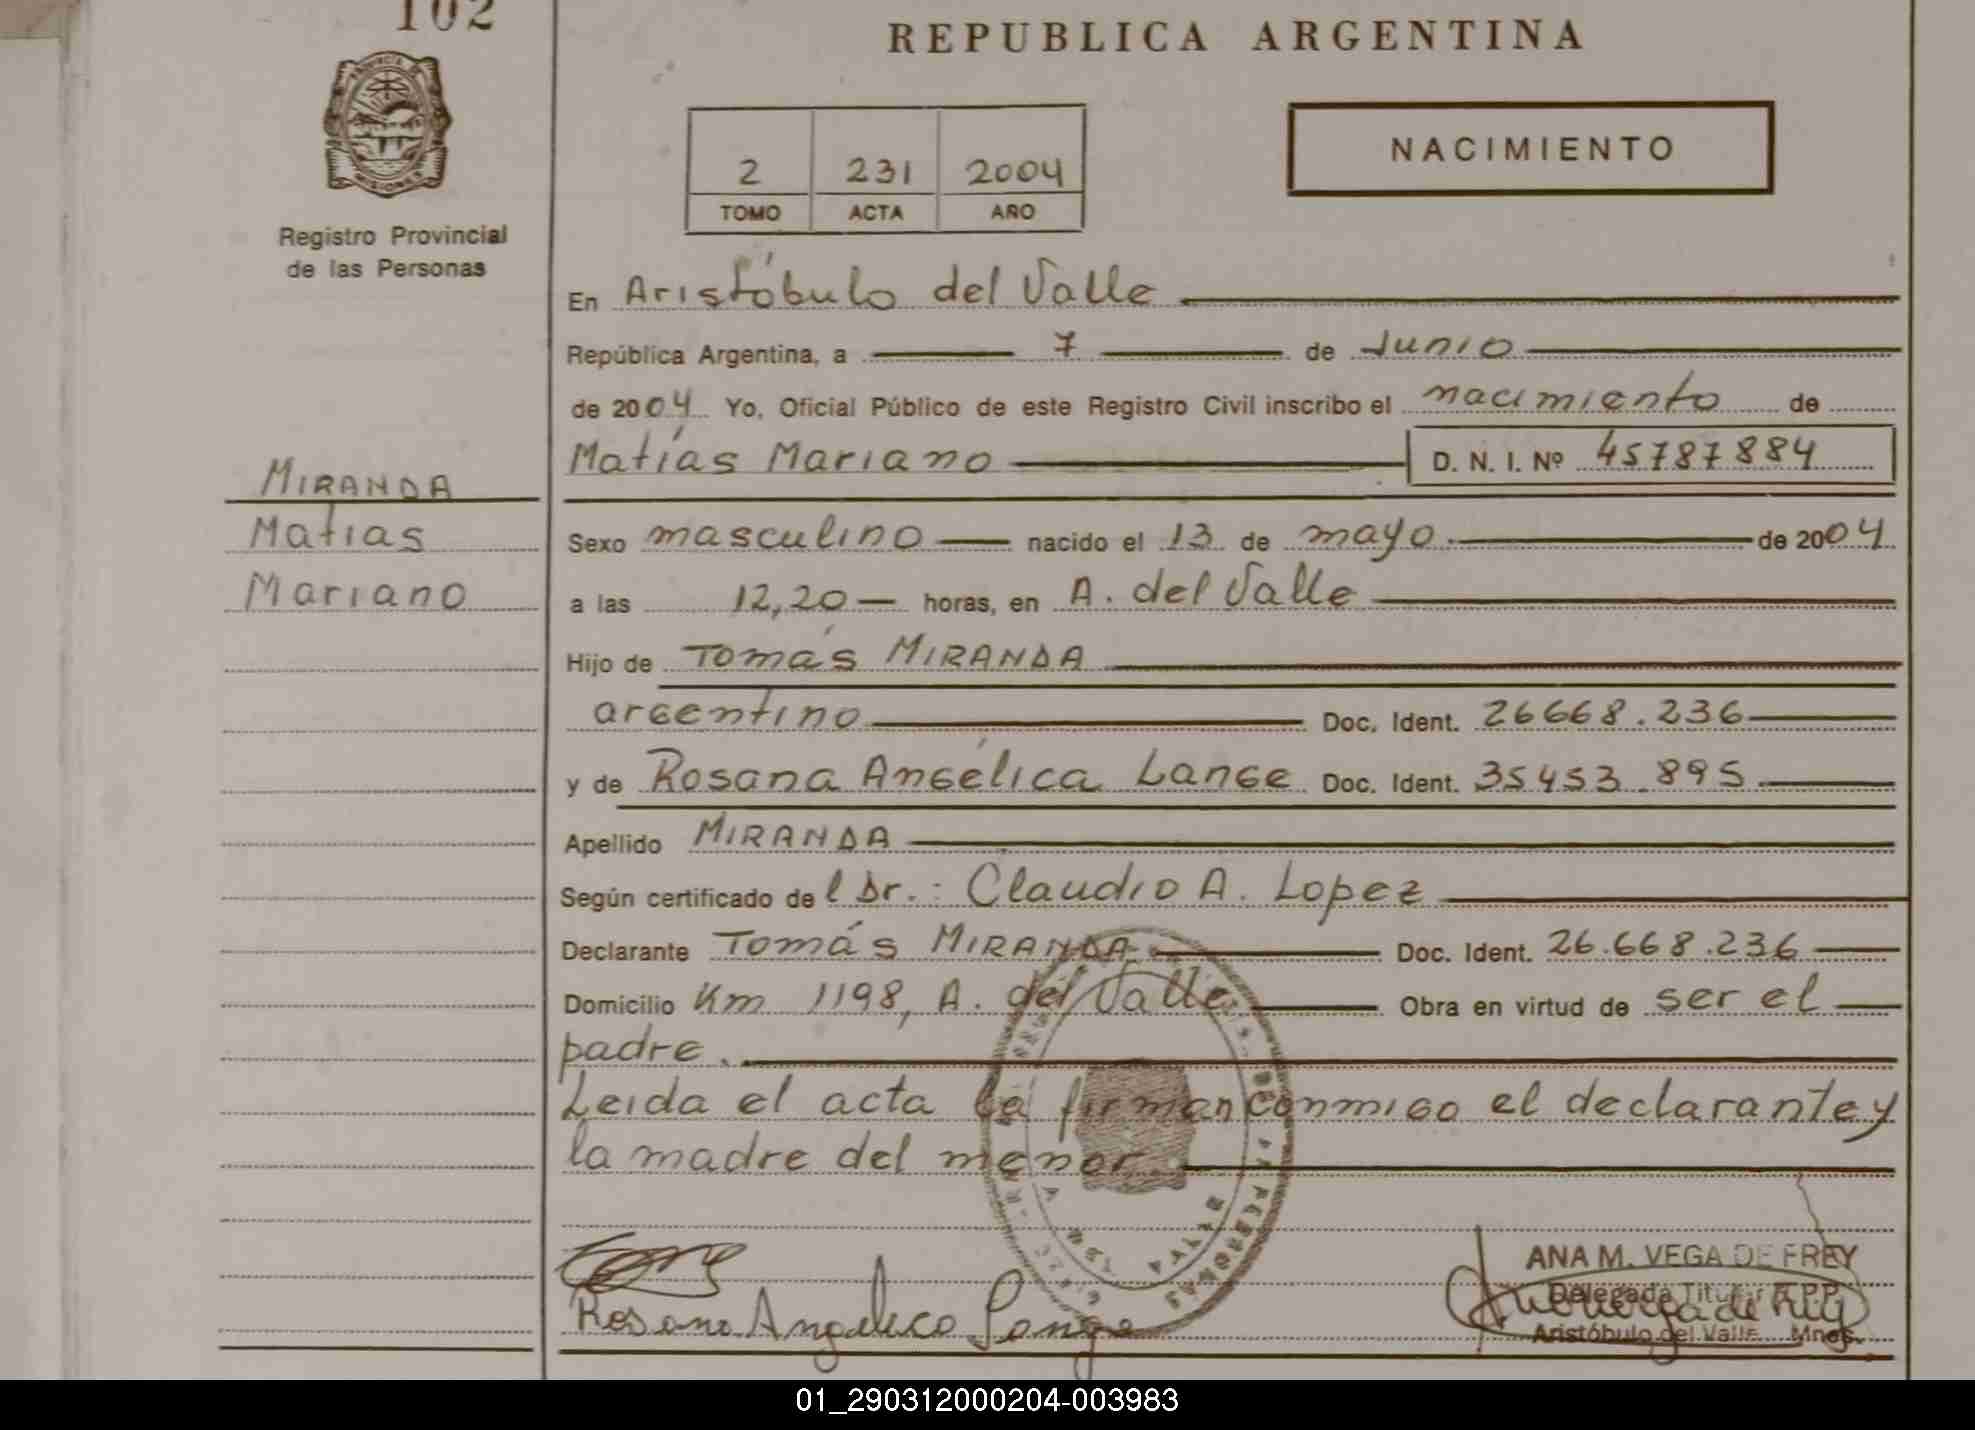 102
REPUBLICA ARGENTINA
PROVINCIA DE
MISIONES
Registro Provincial
de las Personas
2 231 2004
TOMO ACTA AÑO
NACIMIENTO
En Aristóbulo del Valle
República Argentina, a 7 de Junio
de 2004 Yo, Oficial Público de este Registro Civil inscribo el nacimiento de
Matías Mariano D. N. I. Nº 45787884
MIRANDA
Matías
Mariano
Sexo masculino nacido el 13 de mayo de 2004
a las 12,20 horas, en A. del Valle
Hijo de Tomás MIRANDA
argentino Doc. Ident. 26668.236
y de Rosana Angélica Lange Doc. Ident. 35453.895
Apellido MIRANDA
Según certificado del Dr.: Claudio A. Lopez
Declarante Tomás MIRANDA Doc. Ident. 26.668.236
Domicilio Km 1198, A. del Valle Obra en virtud de ser el
padre.
Leida el acta la firman conmigo el declarante y
la madre del menor.
Rosana Angelica Lange
ANA M. VEGA DE FREY
Delegada Titular R.P.P.
Aristóbulo del Valle Mnes.
01_290312000204-003983